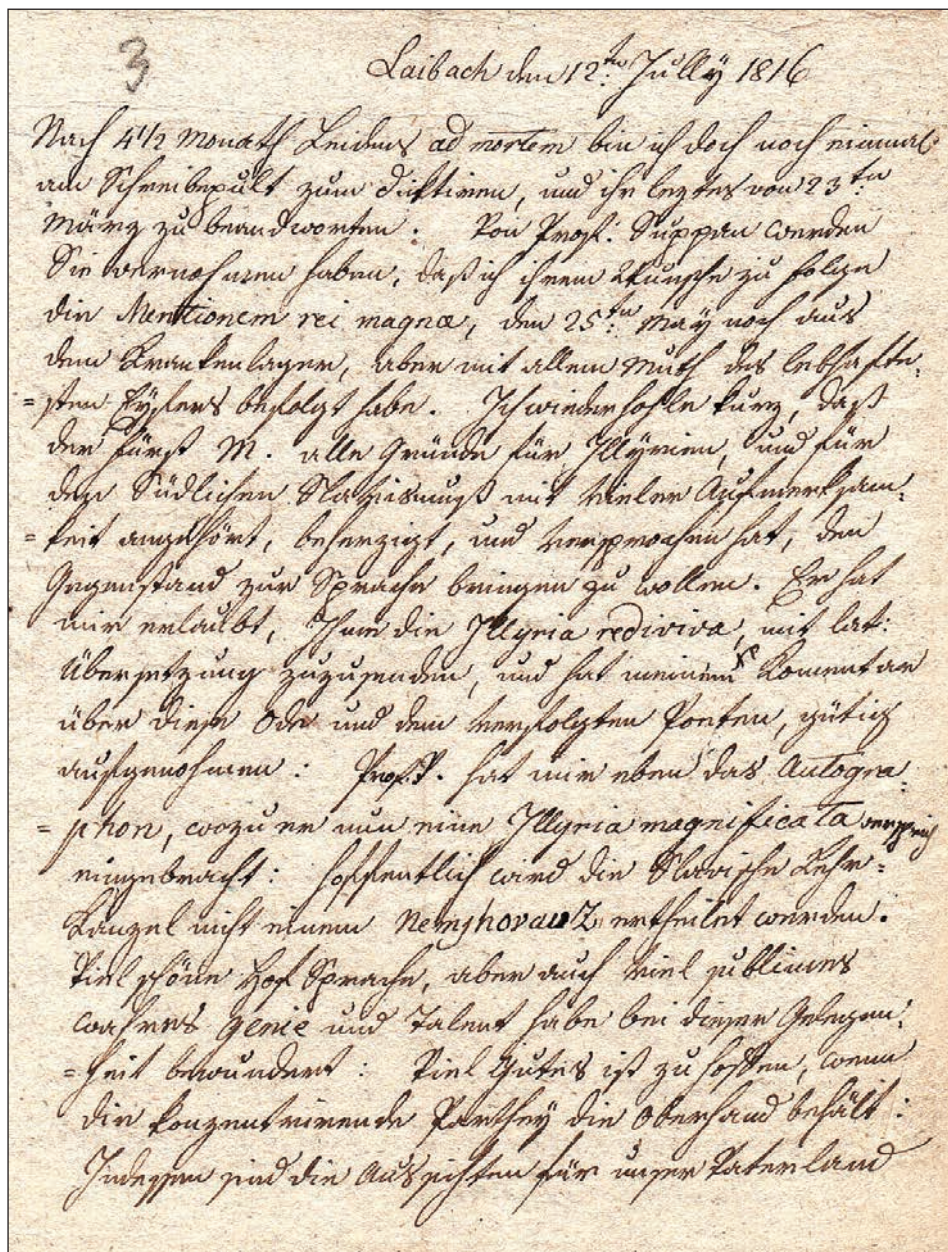 3
Laibach den 12ten Jully 1816
Nach 4 1/2 Monath Leidens ad mortem bin ich doch noch einmal
am Schreibepult zum diktiren, und ihr leztes von 23ten
März zu beandworten. Von Prof: Suppan werden
Sie vernohmen haben, daß ich ihrem Wunsche zu folge
die Mentionem rei magnæ, den 25ten May noch aus
dem Krankenlager, aber mit allem Muth des lebhafte-
=sten Eyfers befolgt habe. Ich wiederhohle kurz, daß
der Fürst M. alle Gründe für Illÿrien, und für
den Südlichen Slavismuß mit vieler Aufmerksam-
=keit angehört, beherzigt, und versprochen hat, den
Gegenstand zur Sprache bringen zu wollen. Er hat
mir erlaubt, Ihm die Illyria rediviva, mit lat:
Übersetzung zuzusenden, und hat meinen Komentar
über diese Ode und dem verfolgten Poeten, gütig
aufgenohmen: Prof. P. hat mir eben das Autogra-
=phon, wozu er nun eine Illyria magnificata
eingebracht: hoffentlich wird die Slavische Lehr-
Kanzel nicht einem Nemshovauz ertheilet werden.
Viel schöne Hof Sprache, aber auch viel sublimes
wahres Genie und Talent habe bei dieser Gelegen-
=heit bewundert: Viel Gutes ist zu hoffen, wenn
die konzentrirende Parthey die Oberhand behält:
Indessen sind die Aussichten für unser Vaterland